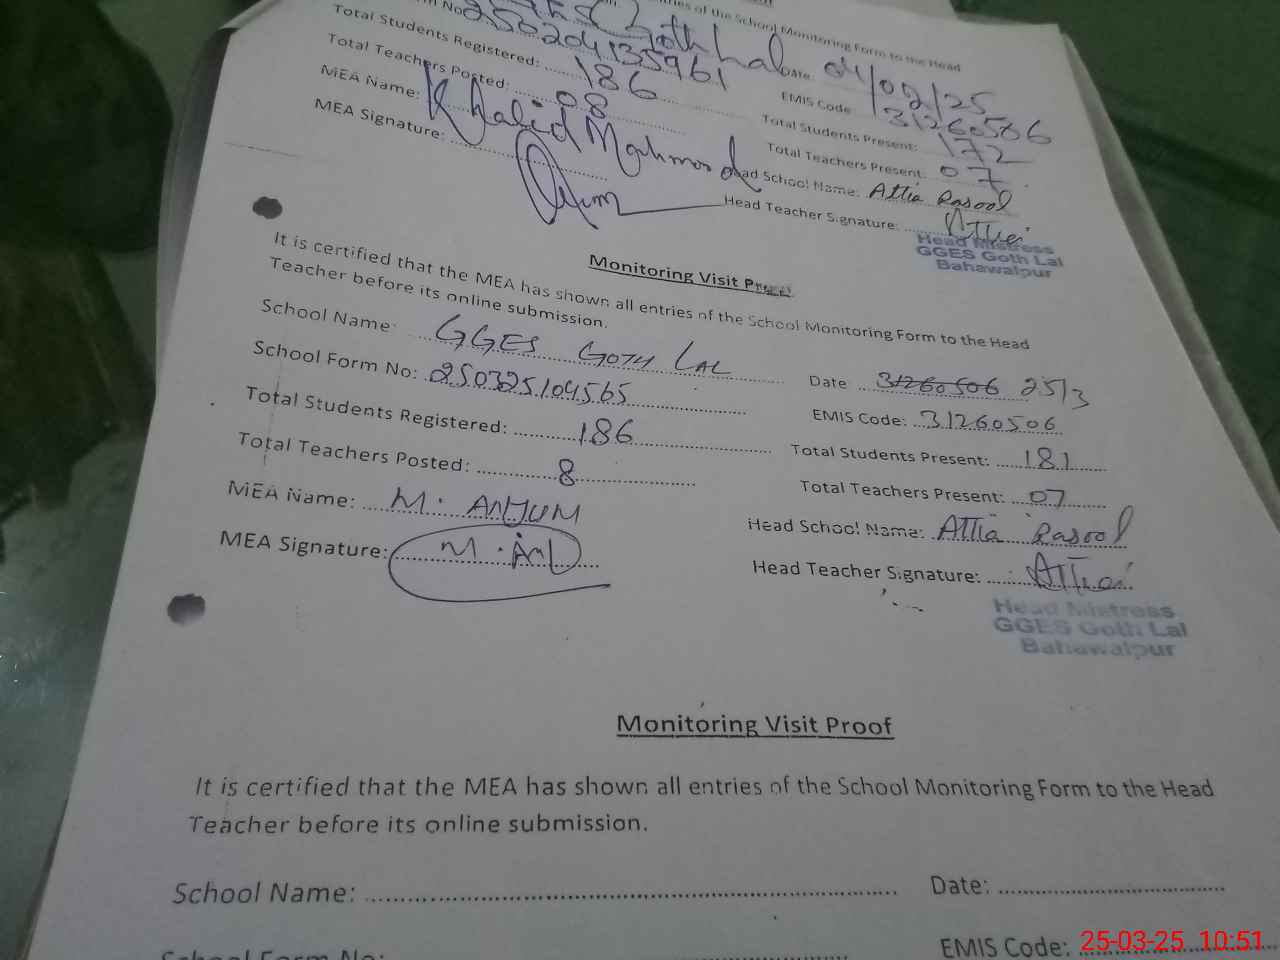 ntries of the School Monitoring Form to the Head
Goth Lal Date: 04/02/25
m No: 250204135961 EMIS Code: 31260506
Total Students Registered: 186 Total Students Present: 172
Total Teachers Posted: 08 Total Teachers Present: 07
MEA Name: Khalid Mahmood ad School Name: Attia Rasool
MEA Signature: Head Teacher Signature: Attia
Head Mistress
GGES Goth Lal
Bahawalpur
Monitoring Visit Proof
It is certified that the MEA has shown all entries of the School Monitoring Form to the Head
Teacher before its online submission.
School Name: GGES GOTH LAL Date 31260506 25/3
School Form No: 250325104565 EMIS Code: 31260506
Total Students Registered: 186 Total Students Present: 181
Total Teachers Posted: 8 Total Teachers Present: 07
MEA Name: M. ANJUM Head School Name: Attia Rasool
MEA Signature: M. Anj Head Teacher Signature: Attia
Head Mistress
GGES Goth Lal
Bahawalpur
Monitoring Visit Proof
It is certified that the MEA has shown all entries of the School Monitoring Form to the Head
Teacher before its online submission.
School Name: Date:
School Form No: EMIS Code:
25-03-25 10:51